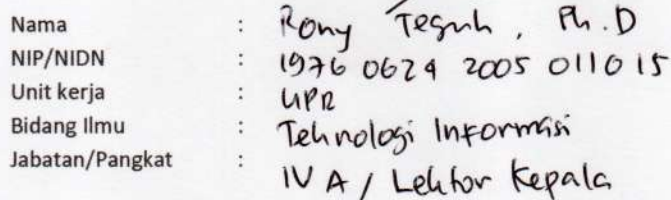 Nama : Rony Teguh, Ph.D
NIP/NIDN : 1976 0624 2005 011015
Unit kerja : UPR
Bidang Ilmu : Teknologi Informasi
Jabatan/Pangkat : IV A / Lektor Kepala